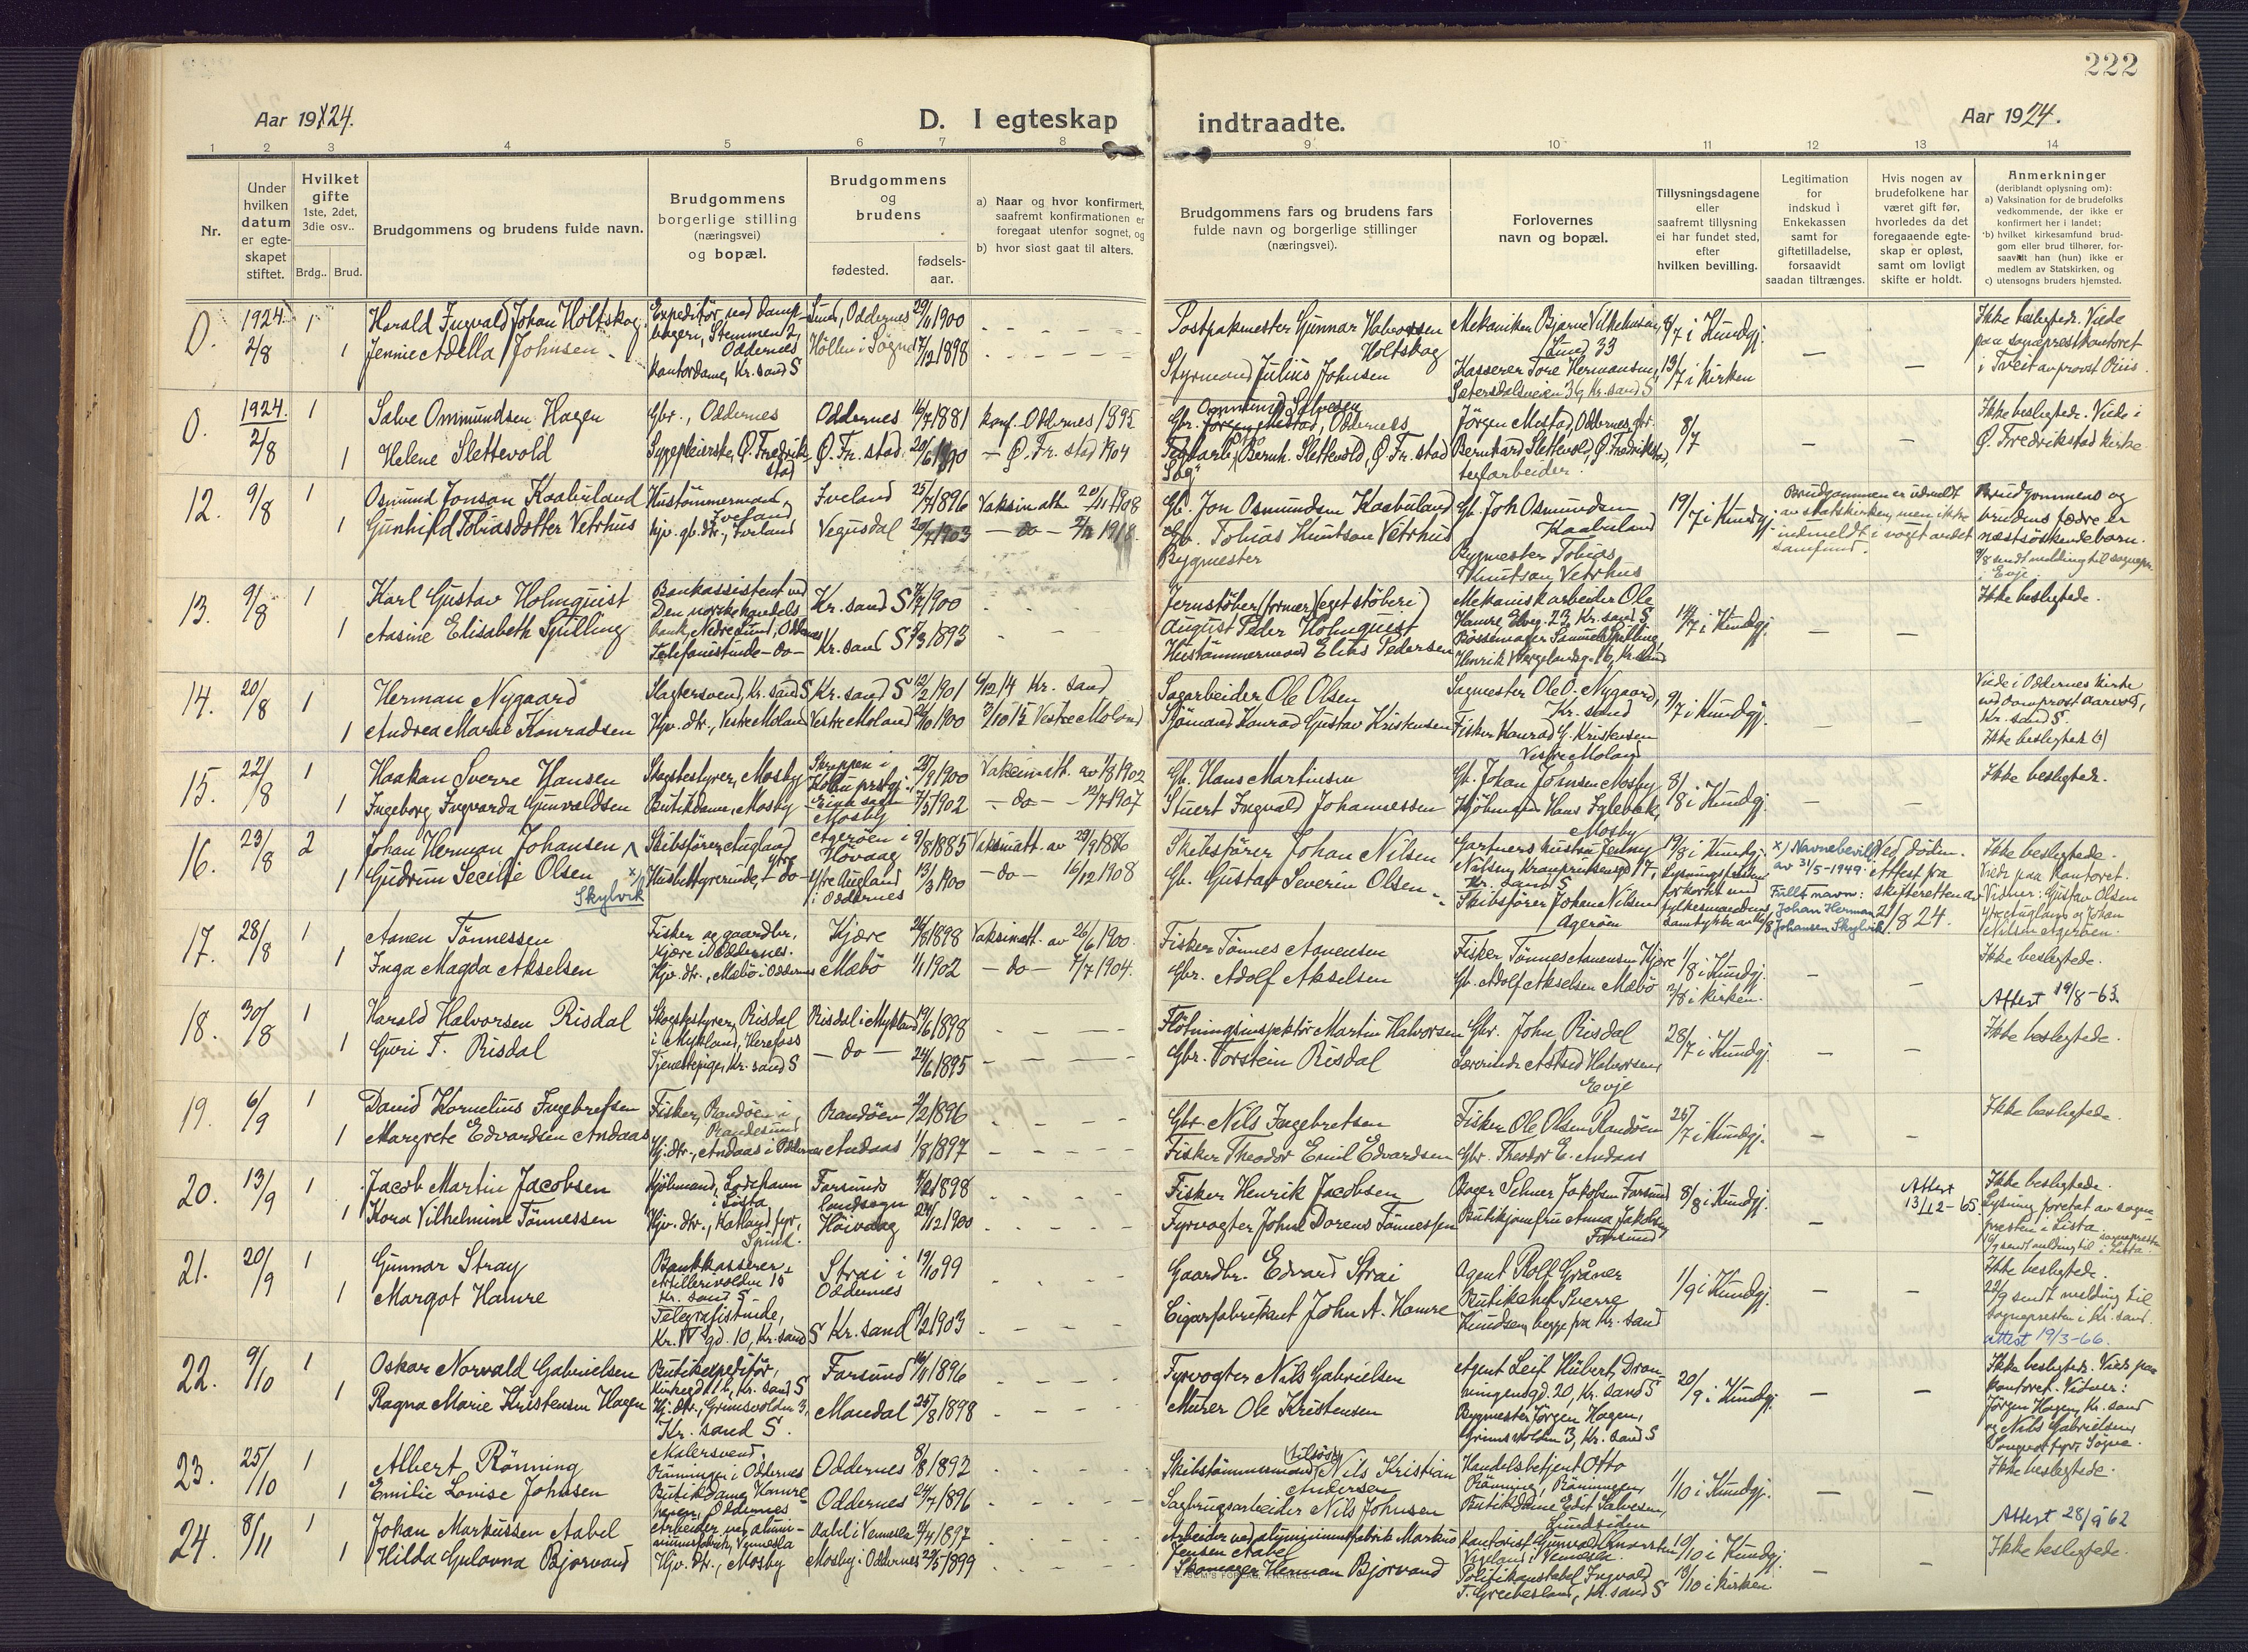 222
Aar 1924.
D. I egteskap indtraadte.
Aar 1924.
1 2 3 4 5 6 7 8 9 10 11 12 13 14
Nr.
Under hvilken datum er egteskapet stiftet.
Hvilket gifte 1ste, 2det, 3die osv..
Brdg.. Brud.
Brudgommens og brudens fulde navn.
Brudgommens borgerlige stilling (næringsvei) og bopæl.
Brudgommens og brudens
fødested.
fødsels-aar.
a) Naar og hvor konfirmert, saafremt konfirmationen er foregaat utenfor sognet, og
b) hvor sidst gaat til alters.
Brudgommens fars og brudens fars fulde navn og borgerlige stillinger (næringsvei).
Forlovernes navn og bopæl.
Tillysningsdagene eller saafremt tillysning ei har fundet sted, efter hvilken bevilling.
Legitimation for indskud i Enkekassen samt for giftetilladelse, forsaavidt saadan tiltrænges.
Hvis nogen av brudefolkene har været gift før, hvorledes da det foregaaende egteskap er opløst, samt om lovligt skifte er holdt.
Anmerkninger (deriblandt oplysning om):
a) Vaksination for de brudefolks vedkommende, der ikke er konfirmert her i landet;
b) hvilket kirkesamfund brudgom eller brud tilhører, forsaavidt han (hun) ikke er medlem av Statskirken, og
c) utensogns bruders hjemsted.
0. 1924. 2/8 1 Harald Ingvald Johan Holtskog Expeditør ved damp- Lund, Oddernes 29/11 1900
Postpakmester Gunnar Halvorsen Holtskog Mekaniker Bjarne Vilhelmsen, Lund 33 8/7 i Kundgj. Ikke beslegtede. Viede paa sogneprestkontoret i Tveit av provst Riis.
1 Jennie Adella Johnsen Kontordame, Kr.sand S Høllen i Søgne 17/12 1898
Styrmand Julius Johnsen Kasserer Tore Hermansen, Setersdalsveien 36, Kr.sand S 13/7 i kirken
0. 1924. 2/8 1 Salve Ommundsen Hagen Gbr., Oddernes Oddernes 16/7 1881 konf. Oddernes 1895
Gbr. Ommund Salvesen, Oddernes Jørgen Mestad, Oddernes, gbr. 8/7 Ikke beslegtede. Viede i Ø. Fredrikstad kirke
1 Helene Slettevold Sypleierske, Ø. Fredrikstad Ø. Fr.stad 20/6 1890 - Ø. Fr.stad 1904
Bernh. Slettevold, Ø. Fr.stad Bernhard Slettevold, Ø. Fredrikstad,
12. 9/8 1 Osmund Jonson Kaabuland Hustømmermand, Iveland Iveland 25/7 1896 Vaksinatt. 20/11 1908
Gb. Jon Osmundsen Kaabuland Gb. Joh Osmundsen Kaabuland 19/7 i Kundgj. Brudgommen er utmeldt av statskirken, men ikke indmeldt i noget andet samfund. Brudgommens og brudens fædre er næstsøskendebarn.
1 Gunhild Tobiasdotter Vetrhus hjv. gb.dtr., Iveland Vegusdal 20/7 1903 - do -
Gb. Tobias Knutson Vetrhus Bygmester Bygmester Tobias Knutson Vetrhus 9/8 sendt melding til sognepr. i Evje.
13. 9/8 1 Karl Gustav Holmquist Bankassistent ved Den norske handelsbank, Nedre Lund, Oddernes Kr.sand S
Jernstøber (former) (eget støberi) August Peder Holmquist Mekanisk arbeider Ole Hamre 14/7 i Kundgj. Ikke beslegtede.
1 Aasine Elisabeth Spilling Telefonistinde - do - Kr.sand S 5/3 1893
Hustømmermand Elias Pedersen
14. 20/8 1 Herman Nygaard Slagtersvend, Kr.sand S Kr.sand S 12/2 1901 Kr.sand
Sagarbeider Ole Olsen Sagmester Ole O. Nygaard, Kr.sand 9/7 i Kundgj. Viede i Oddernes kirke ved domprost Aarvold, Kr.sand S. Ikke beslegtede
1 Andrea Marie Konradsen Hjv. dtr., Vestre Moland Vestre Moland 26/10 1900 3/10 15 Vestre Moland
Sjømand Konrad Gustav Kristensen Fisker Konrad G. Kristensen Vestre Moland
15. 22/8 1 Haakon Sverre Hansen Skogbestyrer, Mosby
Gb. Hans Martinsen Gb. Johan Johnsen Mosby 8/8 i Kundgj. Ikke beslegtede.
1 Ingeborg Ingvarda Gunvaldsen Butikdame, Mosby Mosby 7/5 1902 - do - 12/7 1907
Stuert Ingvald Johannessen Mosby
16. 23/8 2 Johan Herman Johansen Skibsfører, Augland Agerøen i Høvaag 9/8 1885 Vaksinatt. av 29/9 1886
Skibsfører Johan Nilsen 19/8 i Kundgj. x) Navnebevill. av 31/5-1949. Fullt navn: Johan Herman Johansen Skylvik Ved døden. Attest fra skifteretten av 21/8 24. Ikke beslegtede. Viede paa kontoret. Vidner: Gustav Olsen ytre Augland og Johan Nilsen Agerøen.
1 Gudrun Secilie Olsen Husbestyrerinde, - do - Ytre Augland i Oddernes 13/3 1900 - do - 16/12 1908
x) Skylvik
Gb. Gustav Severin Olsen Skibsfører Johan Nilsen Agerøen
17. 28/8 1 Aanen Tønnessen Fisker og gaardbr., Kjøre i Oddernes. Kjøre 26/8 1898 Vaksinatt. av 26/6 1900.
Fisker Tønnes Aanensen Fisker Tønnes Aanensen Kjøre 1/8 i Kundgj. Ikke beslegtede.
1 Inga Magda Akselsen Hjv. dtr., Mæbø i Oddernes Mæbø 1/1 1902 - do - 7/7 1904.
Gbr. Adolf Akselsen Gb. Adolf Akselsen Mæbø 3/8 i kirken. Attest 19/8-63
18. 30/8 1 Harald Halvorsen Risdal Skogbestyrer, Risdal i Mykland, Herefoss Risdal i Mykland 19/6 1898
Fløtningsinspektør Martin Halvorsen Gbr. John Risdal 28/7 i Kundgj. Ikke beslegtede.
1 Guri T. Risdal Tjenestepige, Kr.sand S - do - 24/6 1895
Gbr. Torstein Risdal Lærerinde Astrid Halvorsen, Evje
19. 6/9 1 David Kornelius Ingebretsen Fisker, Randøen i Randesund Randøen 2/2 1896
Gbr. Nils Ingebretsen Fisker Ole Olsen Randøen 26/7 i Kundgj. Ikke beslegtede.
1 Margrete Edvardsen Andaas Hj. dtr., Andaas i Oddernes Andaas 1/8 1897
Fisker Theodor Emil Edvardsen Gbr. Theodor E. Andaas
20. 13/9 1 Jacob Martin Jacobsen Farsunds landsogn
Fisker Henrik Jacobsen 8/8 i Kundgj. Attest 13/12-65. Ikke beslegtede. Lysning foretat av sognepresten i Lista.
1 Kora Vilhelmine Tønnessen Hjv. dtr., Katland fyr, Spind. Høivaag 24/12 1900
Fyrvogter Johan Dorens Tønnessen Butikjomfru Anna Jakobsen, Farsund
21. 20/9 1 Gunnar Stray Bankkasserer, Artillerivolden 15 Kr.sand S Strai i Oddernes 19/10 99
Gaardbr. Edvard Strai Agent Rolf Gråner 1/9 i Kundgj. Ikke beslegtede. 22/9 sendt melding til sognepresten i Kr.sand. attest 19/3-66.
1 Margot Hamre Telegrafistinde, Kr. IV's gd. 10, Kr.sand S Kr.sand
Cigarfabrikant John A. Hamre Butikchef Sverre Knudsen, begge fra Kr.sand
22. 9/10 1 Oskar Norvald Gabrielsen Butikexpeditør, Kr.sand S Farsund 16/11 1896
Fyrvogter Nils Gabrielsen Agent Leif Hubert, Dronningensgd. 20, Kr.sand S 20/9 i Kundgj. Ikke beslegtede. Viede paa kontoret. Vidner: Jørgen Hagen, Kr.sand og Nils Gabrielsen, Songvaar fyr, Søgne.
1 Ragna Marie Kristensen Hagen Hj. dtr., Grimsvolden 3, Kr.sand S. Mandal 25/8 1898
Murer Ole Kristensen Bygmester Jørgen Hagen, Grimsvolden 3, Kr.sand S
23. 25/10 1 Albert Rønning Malersvend, Rønningen i Oddernes Oddernes 8/8 1892
Skibstømmermand Nils Kristian Andersen Handelsbetjent Otto Rønning, Rønningen, 1/10 i Kundgj. Ikke beslegtede.
1 Emilie Lovise Johnsen Butikdame, Oddernes Oddernes 24/7 1896
Sagbrugsarbeider Nils Johnsen Butikdame Edit Salvesen, Lundsiden Attest 28/9 62
24. 8/11 1 Johan Markussen Aabel Arbeider ved aluminiumsfabrik, Vennesla Aabel i Vennesla 2/4 1897
Arbeider ved aluminiumsfabrik Markus Jensen Aabel Vigeland i Vennesla. 10/10 i Kundgj. Ikke beslegtede.
1 Hilda Gulovna Bjorvand Hjv. dtr., Mosby Mosby i Oddernes 24/5 1899
Skomager Herman Bjorvand Politikonstabel Ingvald T. Greibesland, Kr.sand S 13/10 i kirken